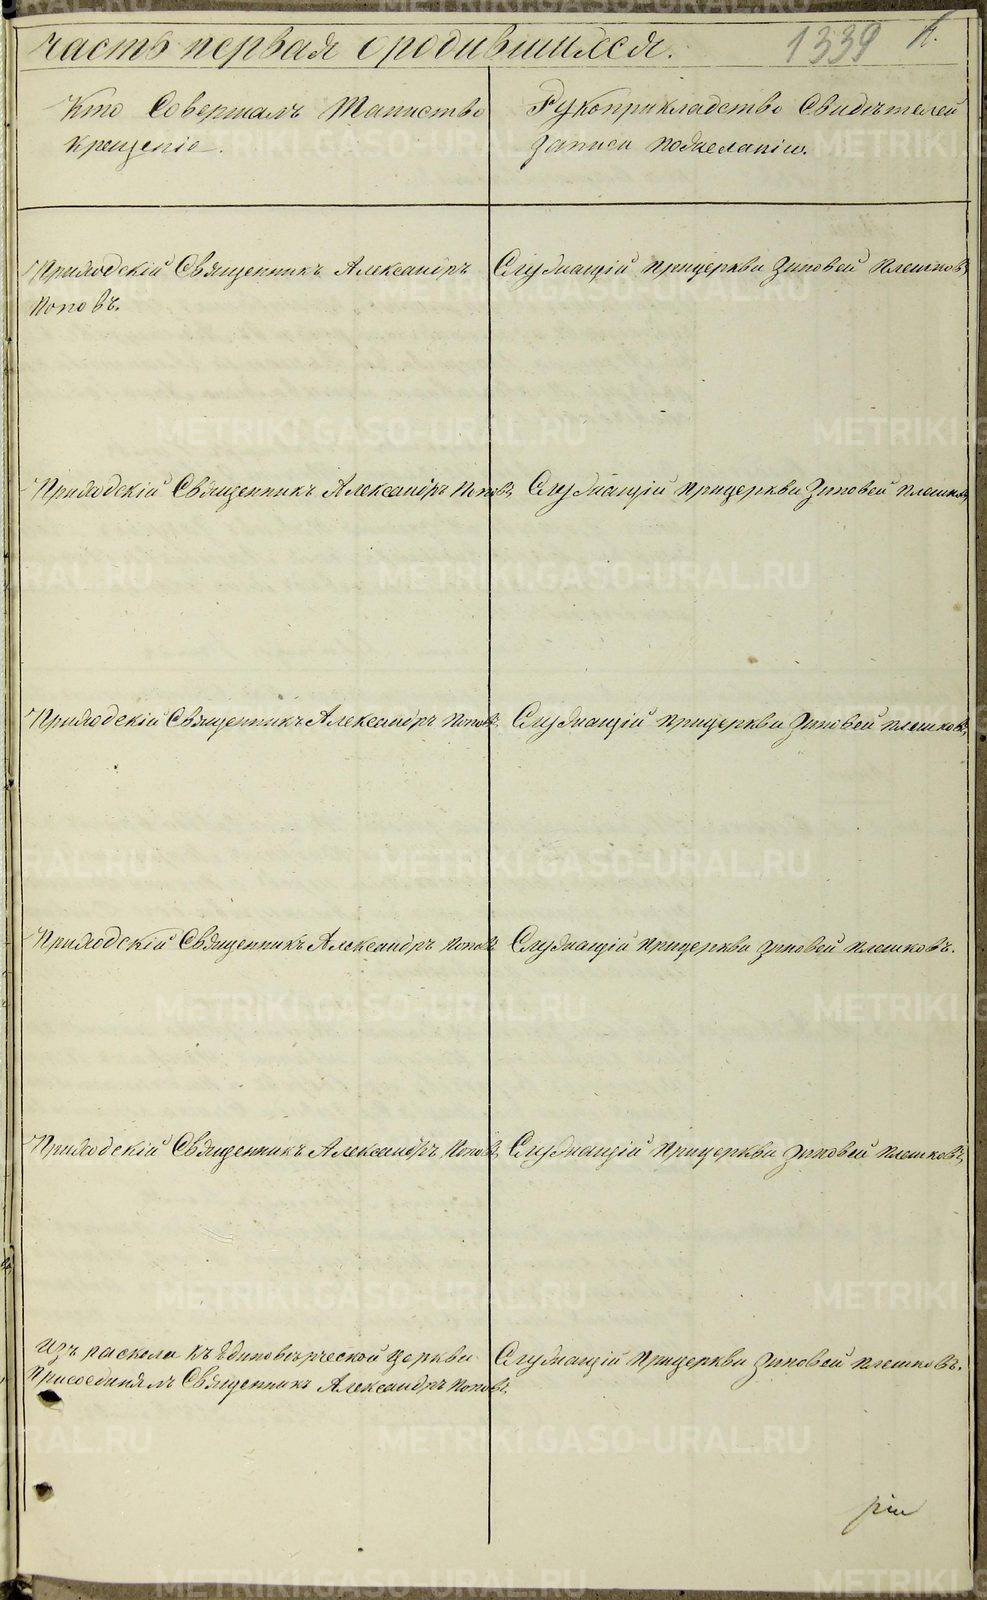 часть первая о родившихся. 1339
Кто Совершалъ Таинство
Крещенiе.
Рукоприкладство Свидѣтелей
Записи пожеланiю.
Приходскiй Священникъ Александръ
Поповъ.
Служащiй прицеркви Зиновей Плешковъ
Приходскiй Священникъ Александръ Поповъ
Служащiй прицеркви Зиновей Плешковъ
Приходскiй Священникъ Александръ Поповъ
Служащiй прицеркви Зиновей Плешковъ
Приходскiй Священникъ Александръ Поповъ
Служащiй прицеркви Зиновей Плешковъ.
Приходскiй Священникъ Александръ Поповъ
Служащiй прицеркви Зиновей Плешковъ
Изъ раскола къ Единовѣрческой Церкви
Присоединялъ Священникъ Александръ Поповъ.
Служащiй прицеркви Зиновей Плешковъ.
METRIKI.GASO-URAL.RU